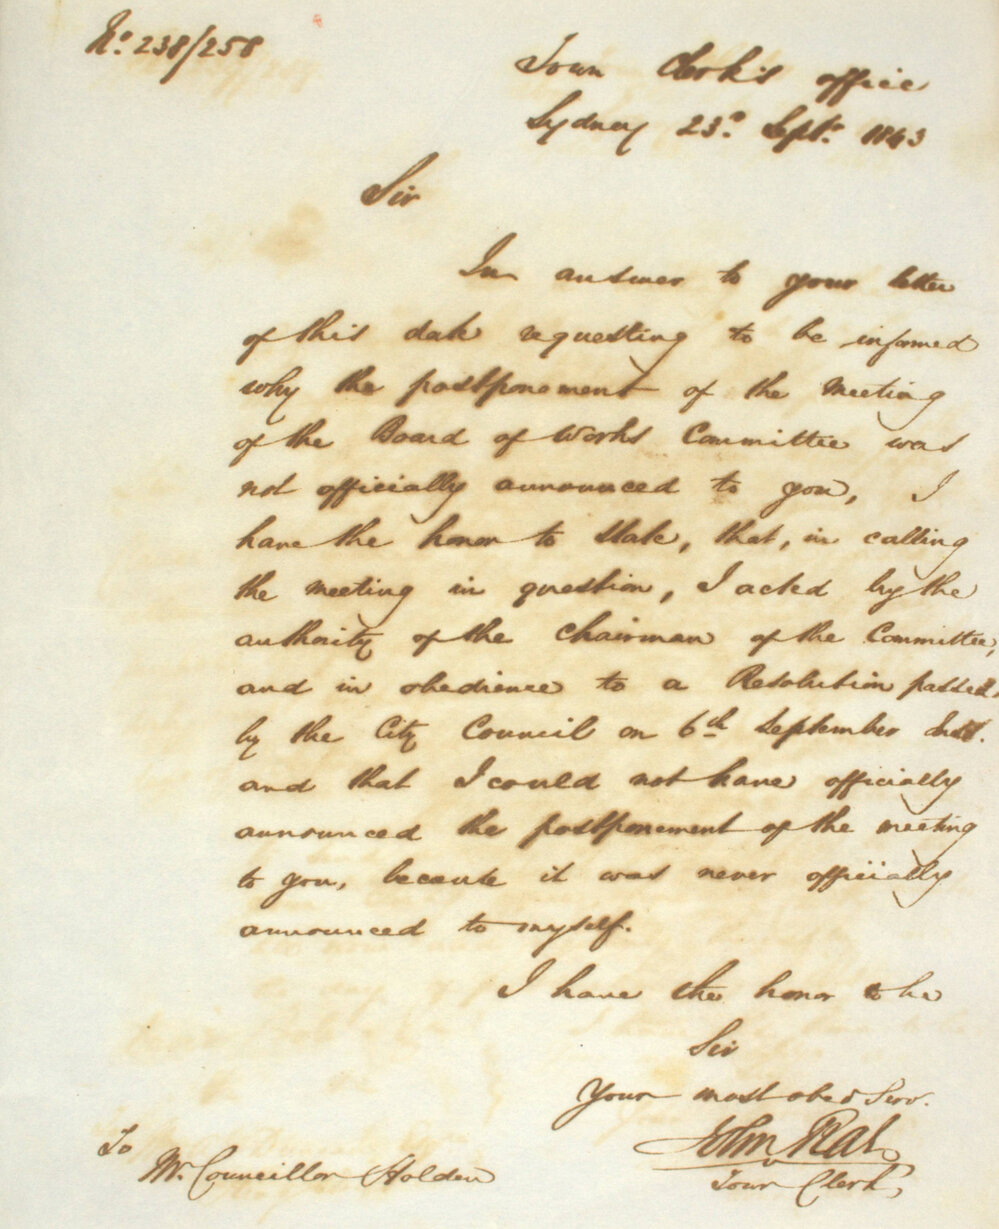 No. 238/258
Town Clerk's office
Sydney 23d. Septr. 1843
Sir
In answer to your letter
of this date requesting to be informed
why the postponement of the Meeting
of the Board of Works Committee was
not officially announced to you, I
have the honor to state, that, in calling
the meeting in question, I acted by the
authority of the Chairman of the Committee,
and in obedience to a Resolution passed
by the City Council on 6th September Inst.
and that I could not have officially
announced the postponement of the meeting
to you, because it was never officially
announced to myself.
I have the honor to be
Sir
Your most obed Serv.
John Rae
Town Clerk
To
Mr. Councillor Holden